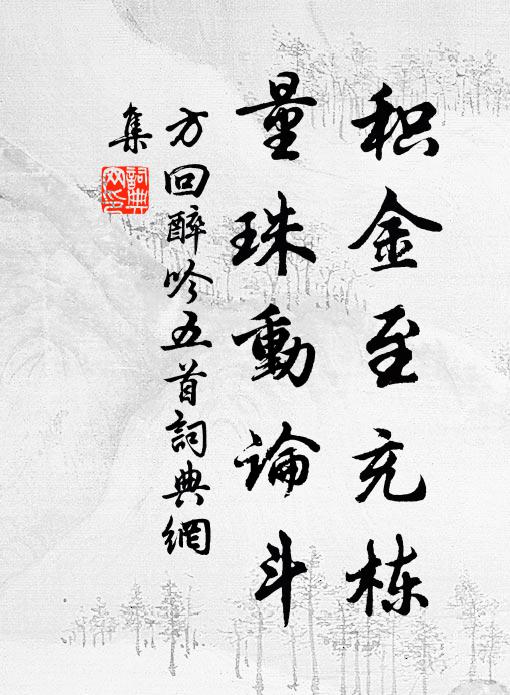 积金至充栋
量珠動論斗
方回醉吟五首詞典網
集
詞典網印